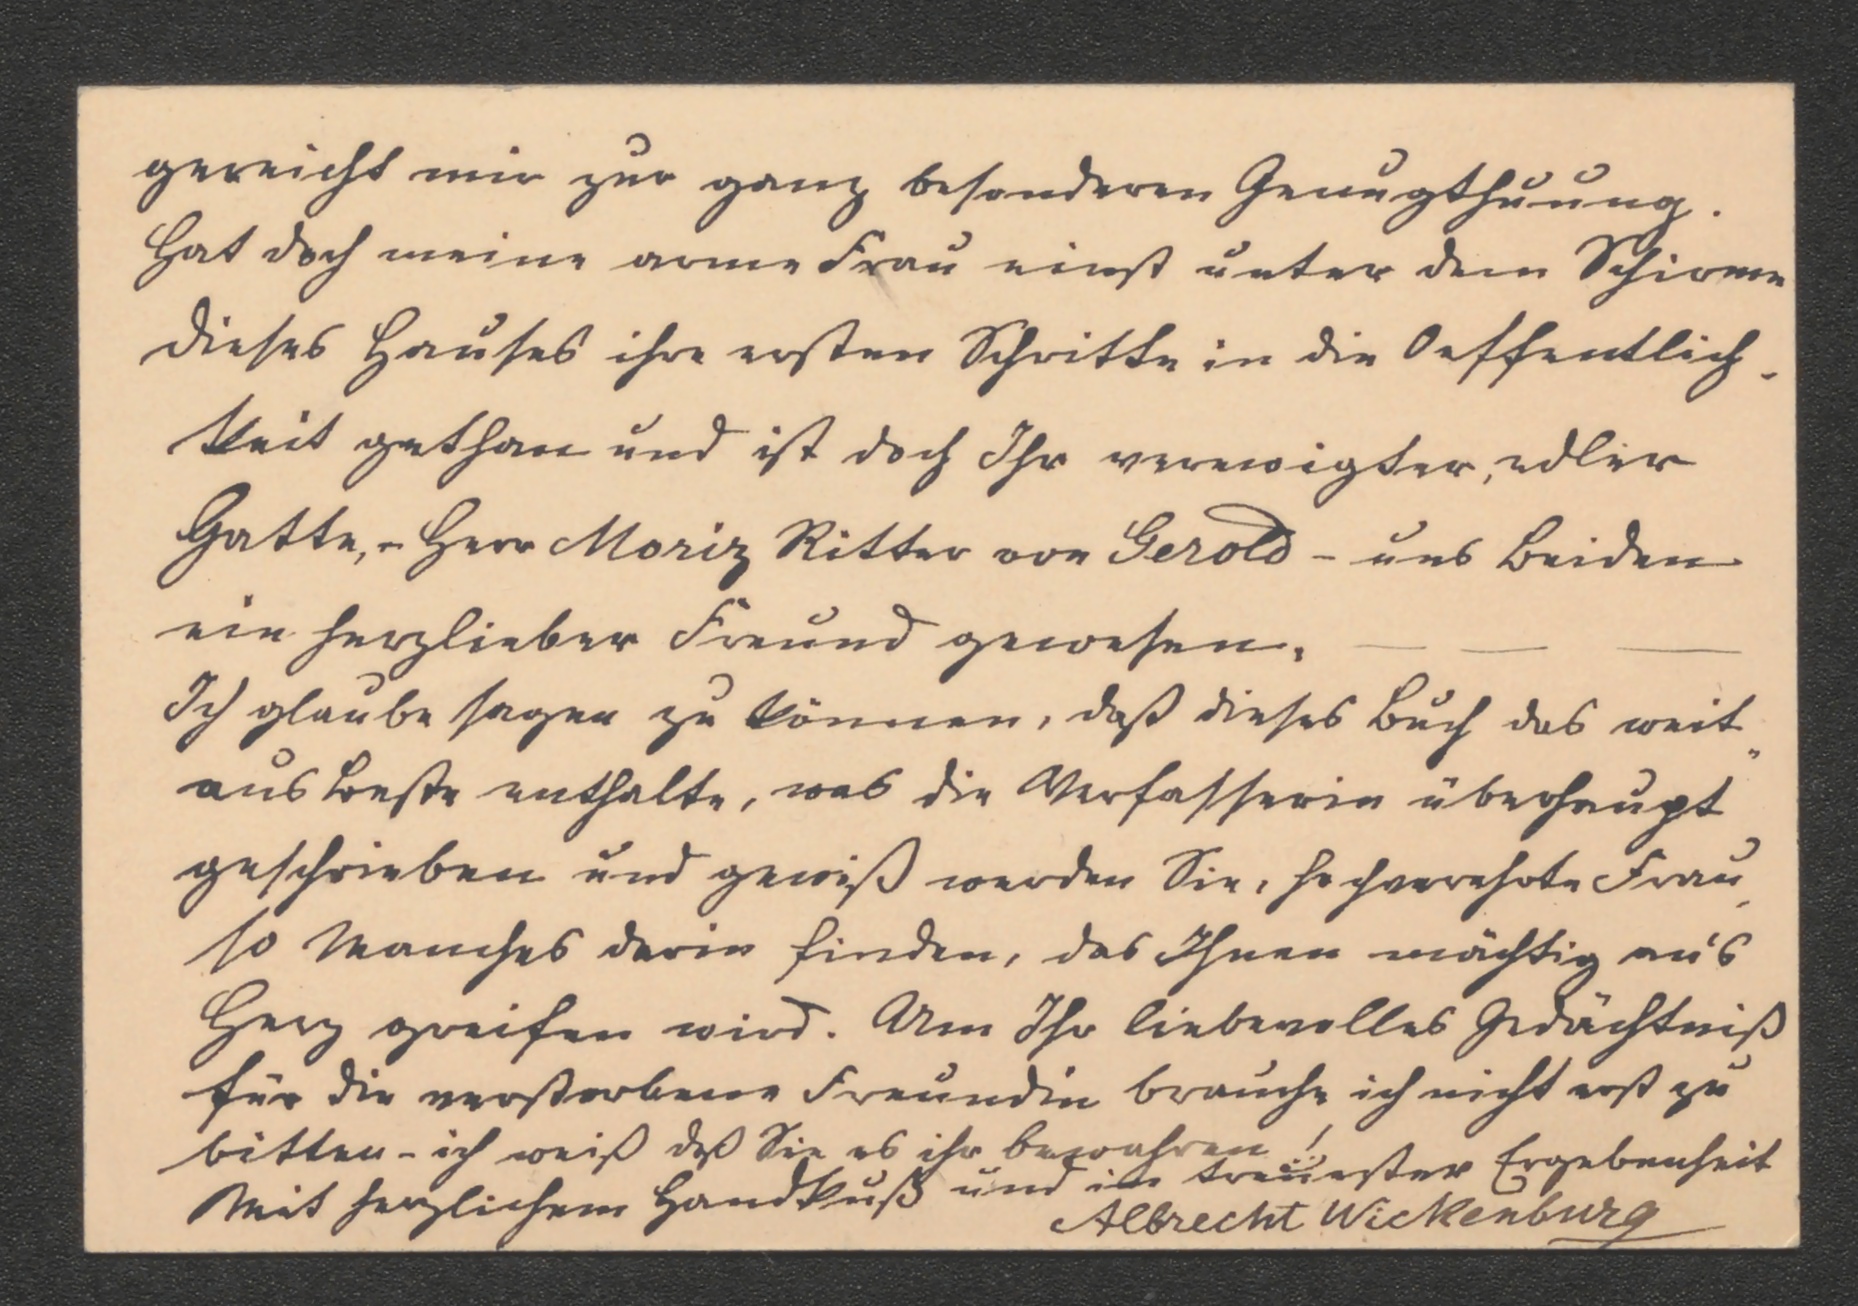 gereicht mir zur ganz besonderen Genugthuung.
Hat doch meine arme Frau einst unter dem Schirme
dieses Hauses ihre ersten Schritte in die Oeffentlich-
keit gethan und ist doch Ihr verewigter, edler
Gatte, - Herr Moriz Ritter von Gerold - uns Beiden
ein herzlieber Freund gewesen. — — —
Ich glaube sagen zu können, daß dieses Buch das weit-
aus Beste enthalte, was die Verfasserin überhaupt
geschrieben und gewiß werden Sie, hochverehrte Frau,
so Manches darin finden, das Ihnen mächtig an's
Herz greifen wird. Um Ihr liebevolles Gedächtniß
für die verstorbene Freundin brauche ich nicht erst zu
bitten - ich weiß daß Sie es ihr bewahren!
Mit herzlichem Handkuß und in treuester Ergebenheit
Albrecht Wickenburg